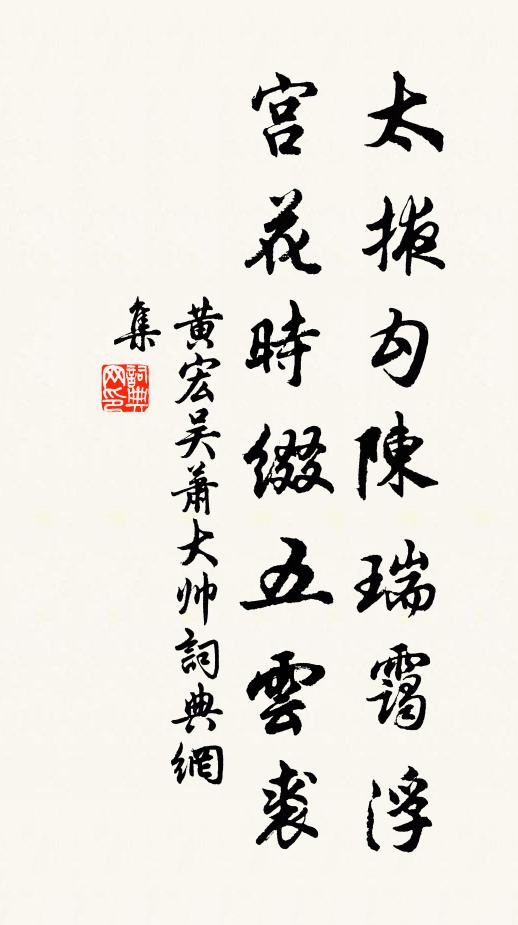 太掖勾陳瑞靄浮
宮花時綴五雲裘
黄宏吴蕭大帅詞典網
集
詞典
网印